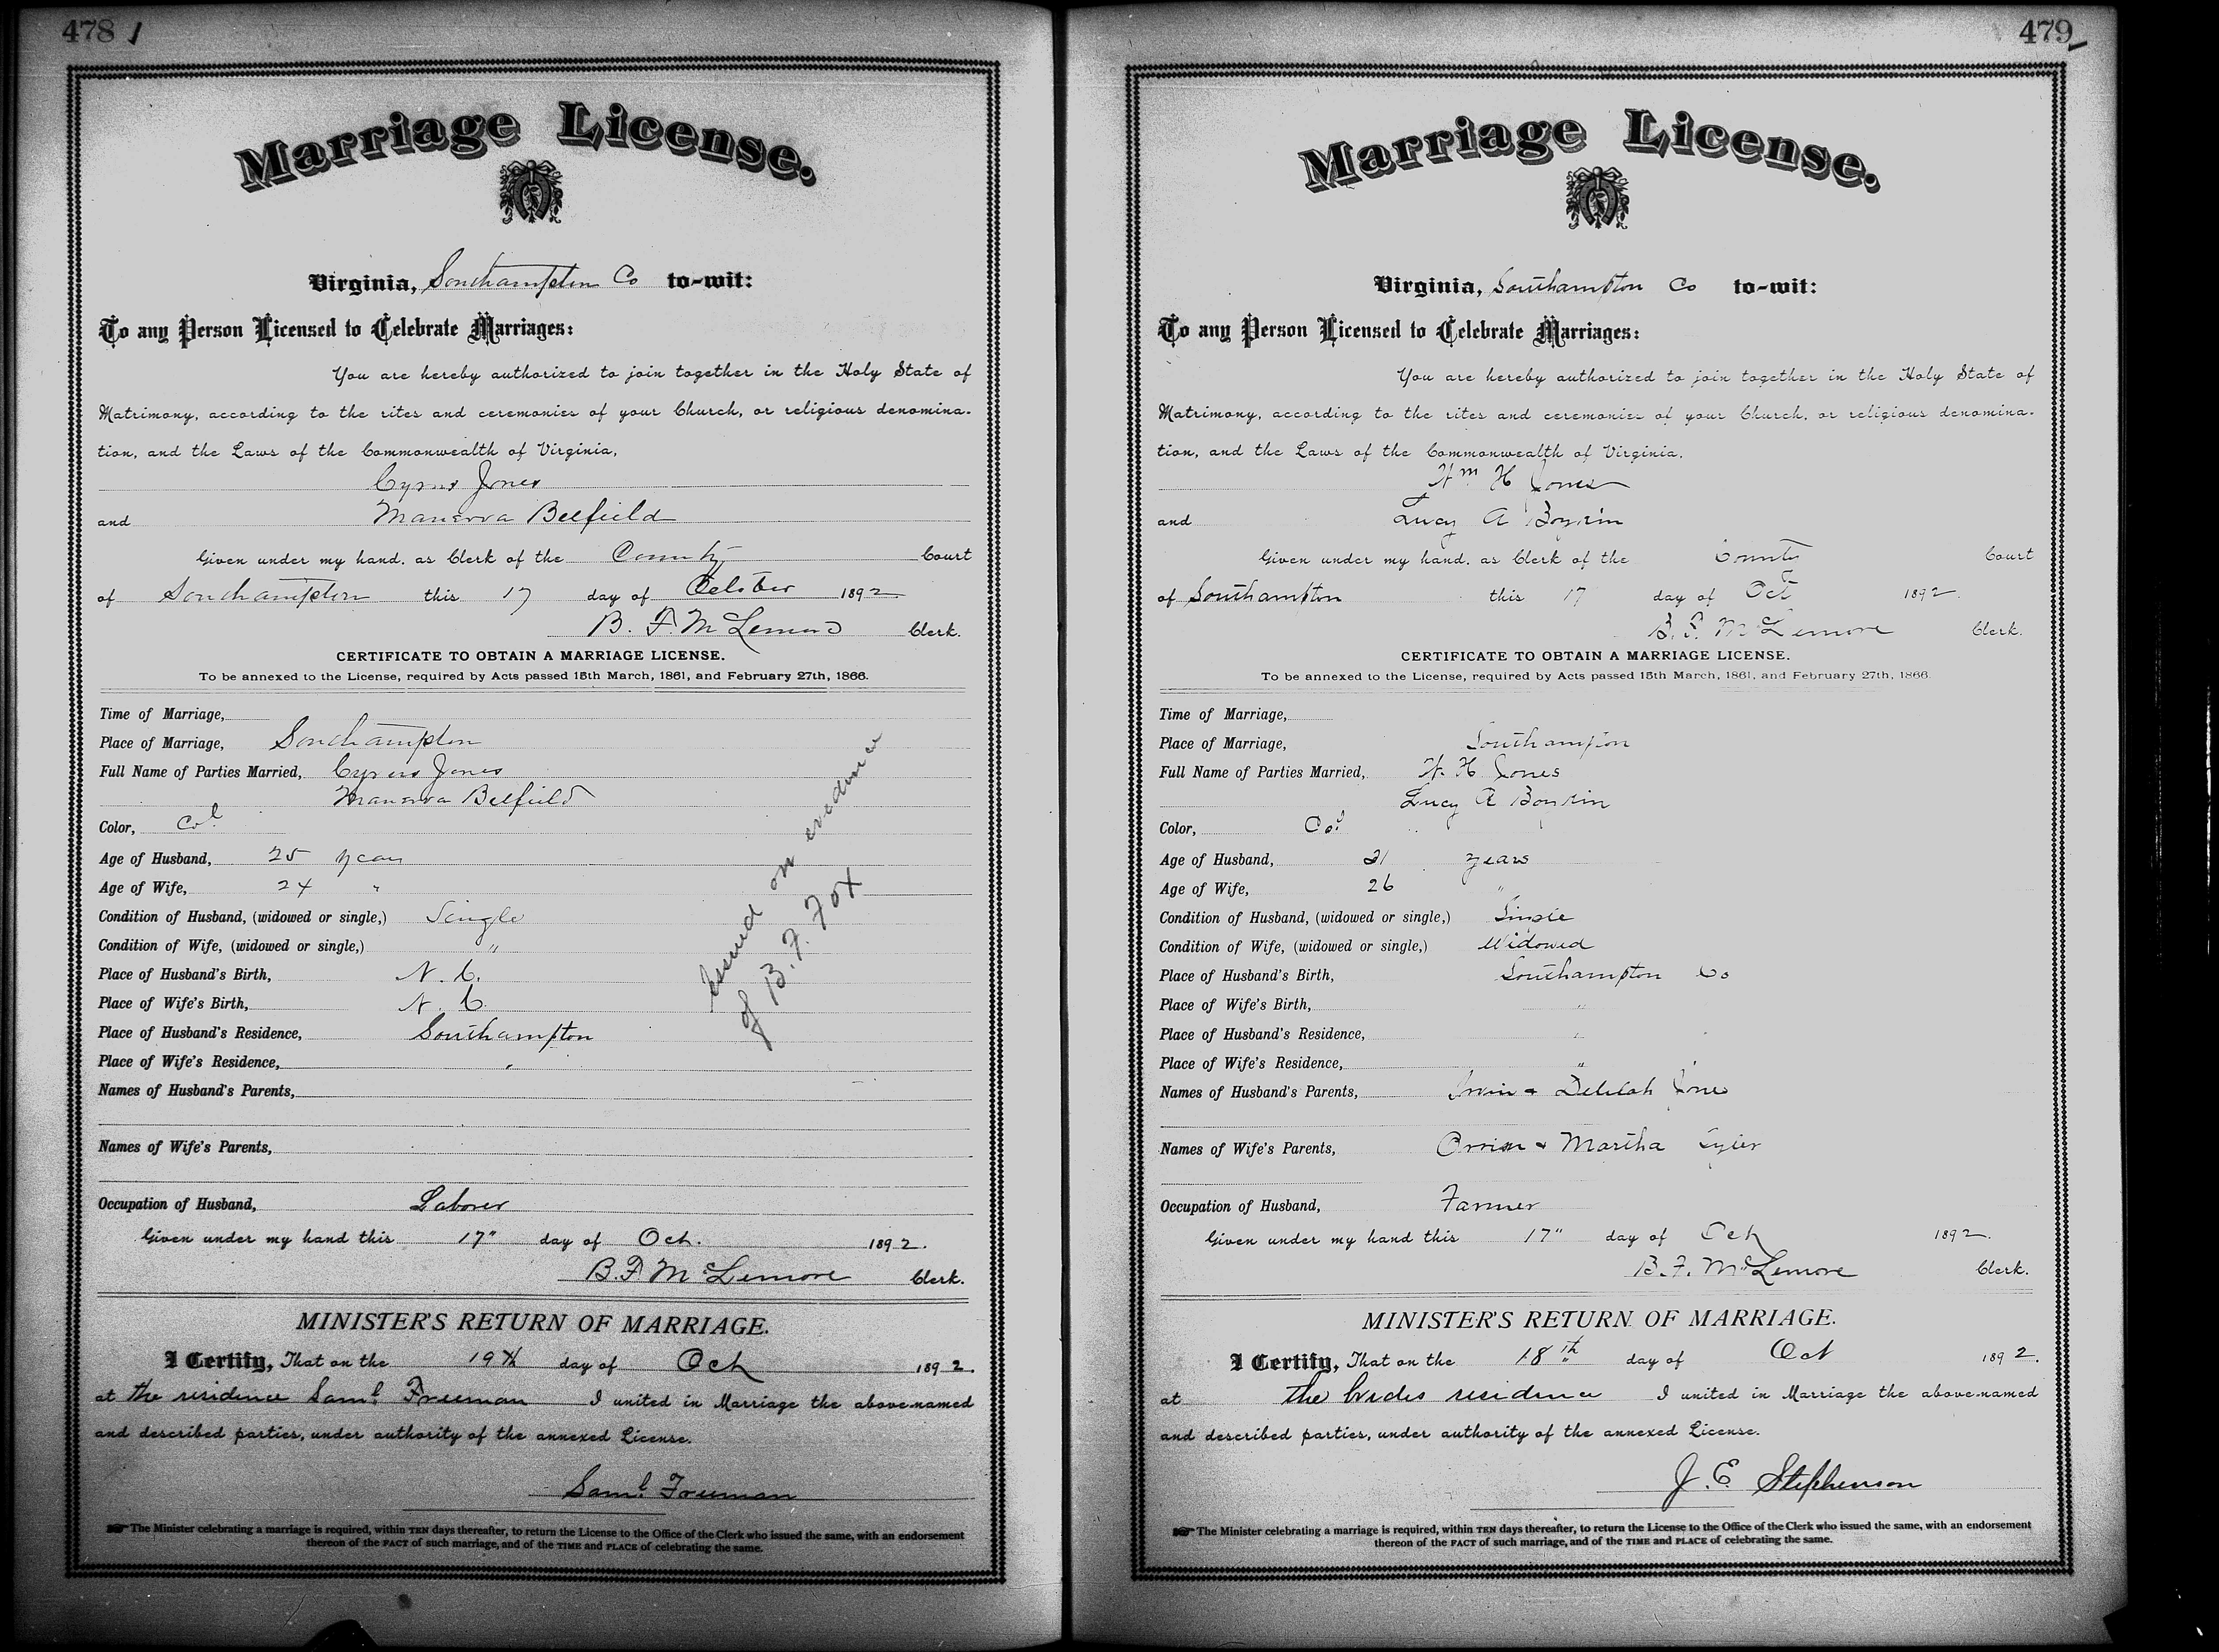 478
Marriage License.
Virginia, Southampton Co to-wit:
To any Person Licensed to Celebrate Marriages:
You are hereby authorized to join together in the Holy State of
Matrimony, according to the rites and ceremonies of your Church, or religious denomina-
tion, and the Laws of the Commonwealth of Virginia,
Cyrus Jones
and Manerva Belfield
Given under my hand, as Clerk of the County Court
of Southampton this 17 day of October 1892
B. F. McLemore Clerk.
CERTIFICATE TO OBTAIN A MARRIAGE LICENSE.
To be annexed to the License, required by Acts passed 15th March, 1861, and February 27th, 1866.
Time of Marriage,
Place of Marriage, Southampton
Full Name of Parties Married, Cyrus Jones
Manerva Belfield
Color, Col
Age of Husband, 25 years
Age of Wife, 24 "
Condition of Husband, (widowed or single,) Single
Condition of Wife, (widowed or single,) "
Place of Husband's Birth, N. C.
Place of Wife's Birth, N. C.
Place of Husband's Residence, Southampton
Place of Wife's Residence, "
Names of Husband's Parents,
Names of Wife's Parents,
Issued on evidence
of B. F. Fox
Occupation of Husband, Laborer
Given under my hand this 17" day of Oct. 1892.
B. F. McLemore Clerk.
MINISTER'S RETURN OF MARRIAGE.
I Certify, That on the 19th day of Oct 1892.
at the residence Saml Freeman I united in Marriage the above-named
and described parties, under authority of the annexed License.
Saml Freeman
The Minister celebrating a marriage is required, within TEN days thereafter, to return the License to the Office of the Clerk who issued the same, with an endorsement
thereon of the FACT of such marriage, and of the TIME and PLACE of celebrating the same.
479
Marriage License.
Virginia, Southampton Co to-wit:
To any Person Licensed to Celebrate Marriages:
You are hereby authorized to join together in the Holy State of
Matrimony, according to the rites and ceremonies of your Church, or religious denomina-
tion, and the Laws of the Commonwealth of Virginia,
Wm H Jones
and Lucy A Boykin
Given under my hand, as Clerk of the County Court
of Southampton this 17 day of Oct 1892.
B. F. McLemore Clerk.
CERTIFICATE TO OBTAIN A MARRIAGE LICENSE.
To be annexed to the License, required by Acts passed 15th March, 1861, and February 27th, 1866.
Time of Marriage,
Place of Marriage, Southampton
Full Name of Parties Married, W. H Jones
Lucy A Boykin
Color, Col
Age of Husband, 21 years
Age of Wife, 26 "
Condition of Husband, (widowed or single,) Single
Condition of Wife, (widowed or single,) Widowed
Place of Husband's Birth, Southampton Co
Place of Wife's Birth, "
Place of Husband's Residence, "
Place of Wife's Residence, "
Names of Husband's Parents, & Delilah Jones
Names of Wife's Parents, & Martha
Occupation of Husband, Farmer
Given under my hand this 17" day of Oct 1892.
B. F. McLemore Clerk.
MINISTER'S RETURN OF MARRIAGE.
I Certify, That on the 18th day of Oct 1892.
at the brides residence I united in Marriage the above-named
and described parties, under authority of the annexed License.
J. E. Stephenson
The Minister celebrating a marriage is required, within TEN days thereafter, to return the License to the Office of the Clerk who issued the same, with an endorsement
thereon of the FACT of such marriage, and of the TIME and PLACE of celebrating the same.